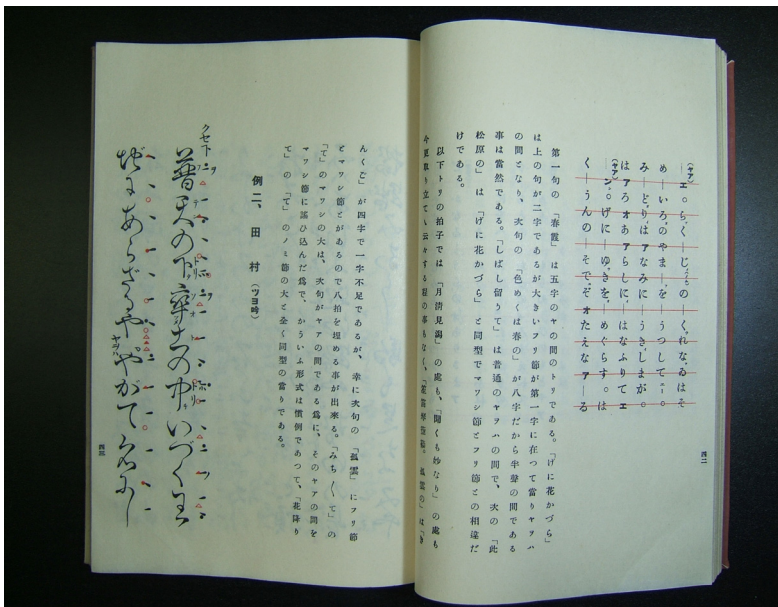 (ヤア)
―ェ○ら、く―じよるの―くれなゐはそ
め―いろ、のやま、を―うつして
み―ど、り、はアなみに―うき、じまが○
はアろオあアらしに、はなふりてェ
(ヤア)
ン○げに―ゆき、を―めぐらす○は
く―うんの―そで、ぞオたえなアーる
第一句の「春霞」は五字のヤの間のトリである。「げに花かづら」
は上の句が二字であるが大きいフリ節が第一字に在つて當りヤヲハ
の間となり、次句の「色めくは春の」が八字だから半聲の間である
事は當然である。「しばし留りて」は普通のヤヲハの間で、次の「此
松原の」は「げに花かづら」と同型でマワシ節とフリ節との相違だ
けである。
以下トリの拍子では「月清見潟」の處も、「聞くも妙なり」の處も
今更取り立てゝ云々する程の事もなく、「笙笛琴箜篌。孤雲の」は「き
四二
んくご」が四字で一字不足であるが、幸に次句の「孤雲」にフリ節
とマワシ節とがあるので八拍を埋める事が出來る。「みち〱て」の
「て」のマワシの大は、次句がヤアの間である爲に、そのヤアの間を
マワシ節に謠ひ込んだ爲で、かういふ形式は慣例であつて、「花降り
て」の「て」のノミ節の大と全く同型の當りである。
例二、田村(ツヨ吟)
クセ下
普天の下率土の中いづく王
地にあらざるや。やがて名にし
ヤヲハ
四三